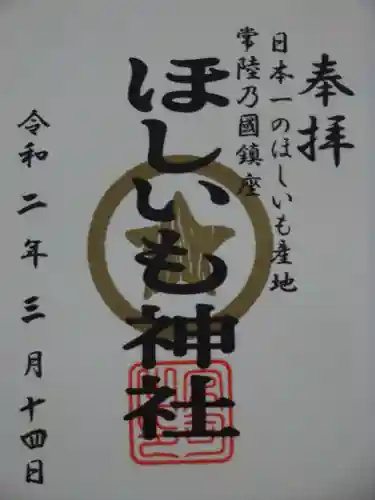 奉拝
日本一のほしいも産地
常陸乃國鎮座
ほしいも神社
令和二年三月十四日